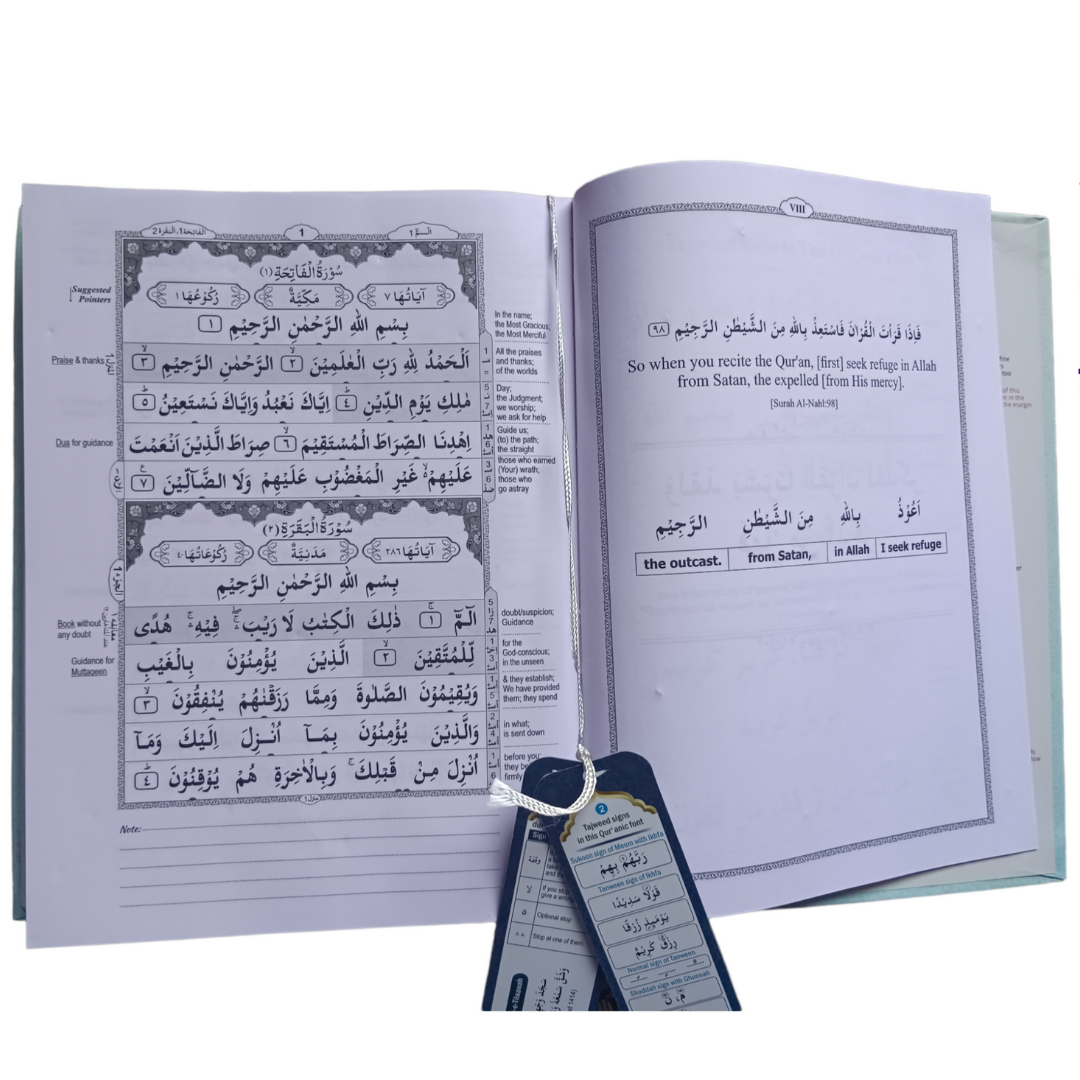 VIII
فَاِذَا قَرَاْتَ الْقُرْاٰنَ فَاسْتَعِذْ بِاللّٰهِ مِنَ الشَّيْطٰنِ الرَّجِيْمِ ٩٨
So when you recite the Qur'an, [first] seek refuge in Allah
from Satan, the expelled [from His mercy].
[Surah Al-Nahl:98]
اَعُوْذُ بِاللّٰهِ مِنَ الشَّيْطٰنِ الرَّجِيْمِ
the outcast. from Satan, in Allah I seek refuge
الٓـمّٓ 1 1 الفاتحة 1، البقرة 2
سُوْرَةُ الْفَاتِحَةِ (١)
اٰيَاتُهَا ٧ مَكِّيَّةٌ رُكُوْعُهَا ١
Suggested
Pointers
بِسْمِ اللّٰهِ الرَّحْمٰنِ الرَّحِيْمِ ١
اَلْحَمْدُ لِلّٰهِ رَبِّ الْعٰلَمِيْنَ ٢ الرَّحْمٰنِ الرَّحِيْمِ ٣
مٰلِكِ يَوْمِ الدِّيْنِ ٤ اِيَّاكَ نَعْبُدُ وَاِيَّاكَ نَسْتَعِيْنُ ٥
اِهْدِنَا الصِّرَاطَ الْمُسْتَقِيْمَ ٦ صِرَاطَ الَّذِيْنَ اَنْعَمْتَ
عَلَيْهِمْ غَيْرِ الْمَغْضُوْبِ عَلَيْهِمْ وَلَا الضَّآلِّيْنَ ٧
Praise & thanks
Dua for guidance
In the name;
the Most Gracious;
the Most Merciful
All the praises
and thanks;
of the worlds
Day;
the Judgment;
we worship;
we ask for help
Guide us;
(to) the path;
the straight
those who earned
(Your) wrath;
those who
go astray
سُوْرَةُ الْبَقَرَةِ (٢)
اٰيَاتُهَا ٢٨٦ مَدَنِيَّةٌ رُكُوْعَاتُهَا ٤٠
بِسْمِ اللّٰهِ الرَّحْمٰنِ الرَّحِيْمِ
الٓمّٓ ١ ذٰلِكَ الْكِتٰبُ لَا رَيْبَ فِيْهِ هُدًى
لِّلْمُتَّقِيْنَ ٢ الَّذِيْنَ يُؤْمِنُوْنَ بِالْغَيْبِ
وَيُقِيْمُوْنَ الصَّلٰوةَ وَمِمَّا رَزَقْنٰهُمْ يُنْفِقُوْنَ ٣
وَالَّذِيْنَ يُؤْمِنُوْنَ بِمَآ اُنْزِلَ اِلَيْكَ وَمَآ
اُنْزِلَ مِنْ قَبْلِكَ وَبِالْاٰخِرَةِ هُمْ يُوْقِنُوْنَ ٤
Book without
any doubt
Guidance for
Muttaqeen
doubt/suspicion;
Guidance
for the
God-conscious;
in the unseen
& they establish;
We have provided
them; they spend
in what;
is sent down
before you;
firmly
Note:
2
Tajweed signs
in this Qur'anic font
Sukoon sign of Meem with Ikhfa
رَبَّهُمْ بِهِمْ
Tanween sign of Ikhfa
قَوْلًا سَدِيْدًا
يَوْمَئِذٍ زُرْقًا
رِزْقٌ كَرِيْمٌ
Normal sign of Tanween
Shaddah sign with Ghunnah
مّ، نّ
Sign
وقفة
لا
If you stop
٥
Optional stop
Stop at one of them